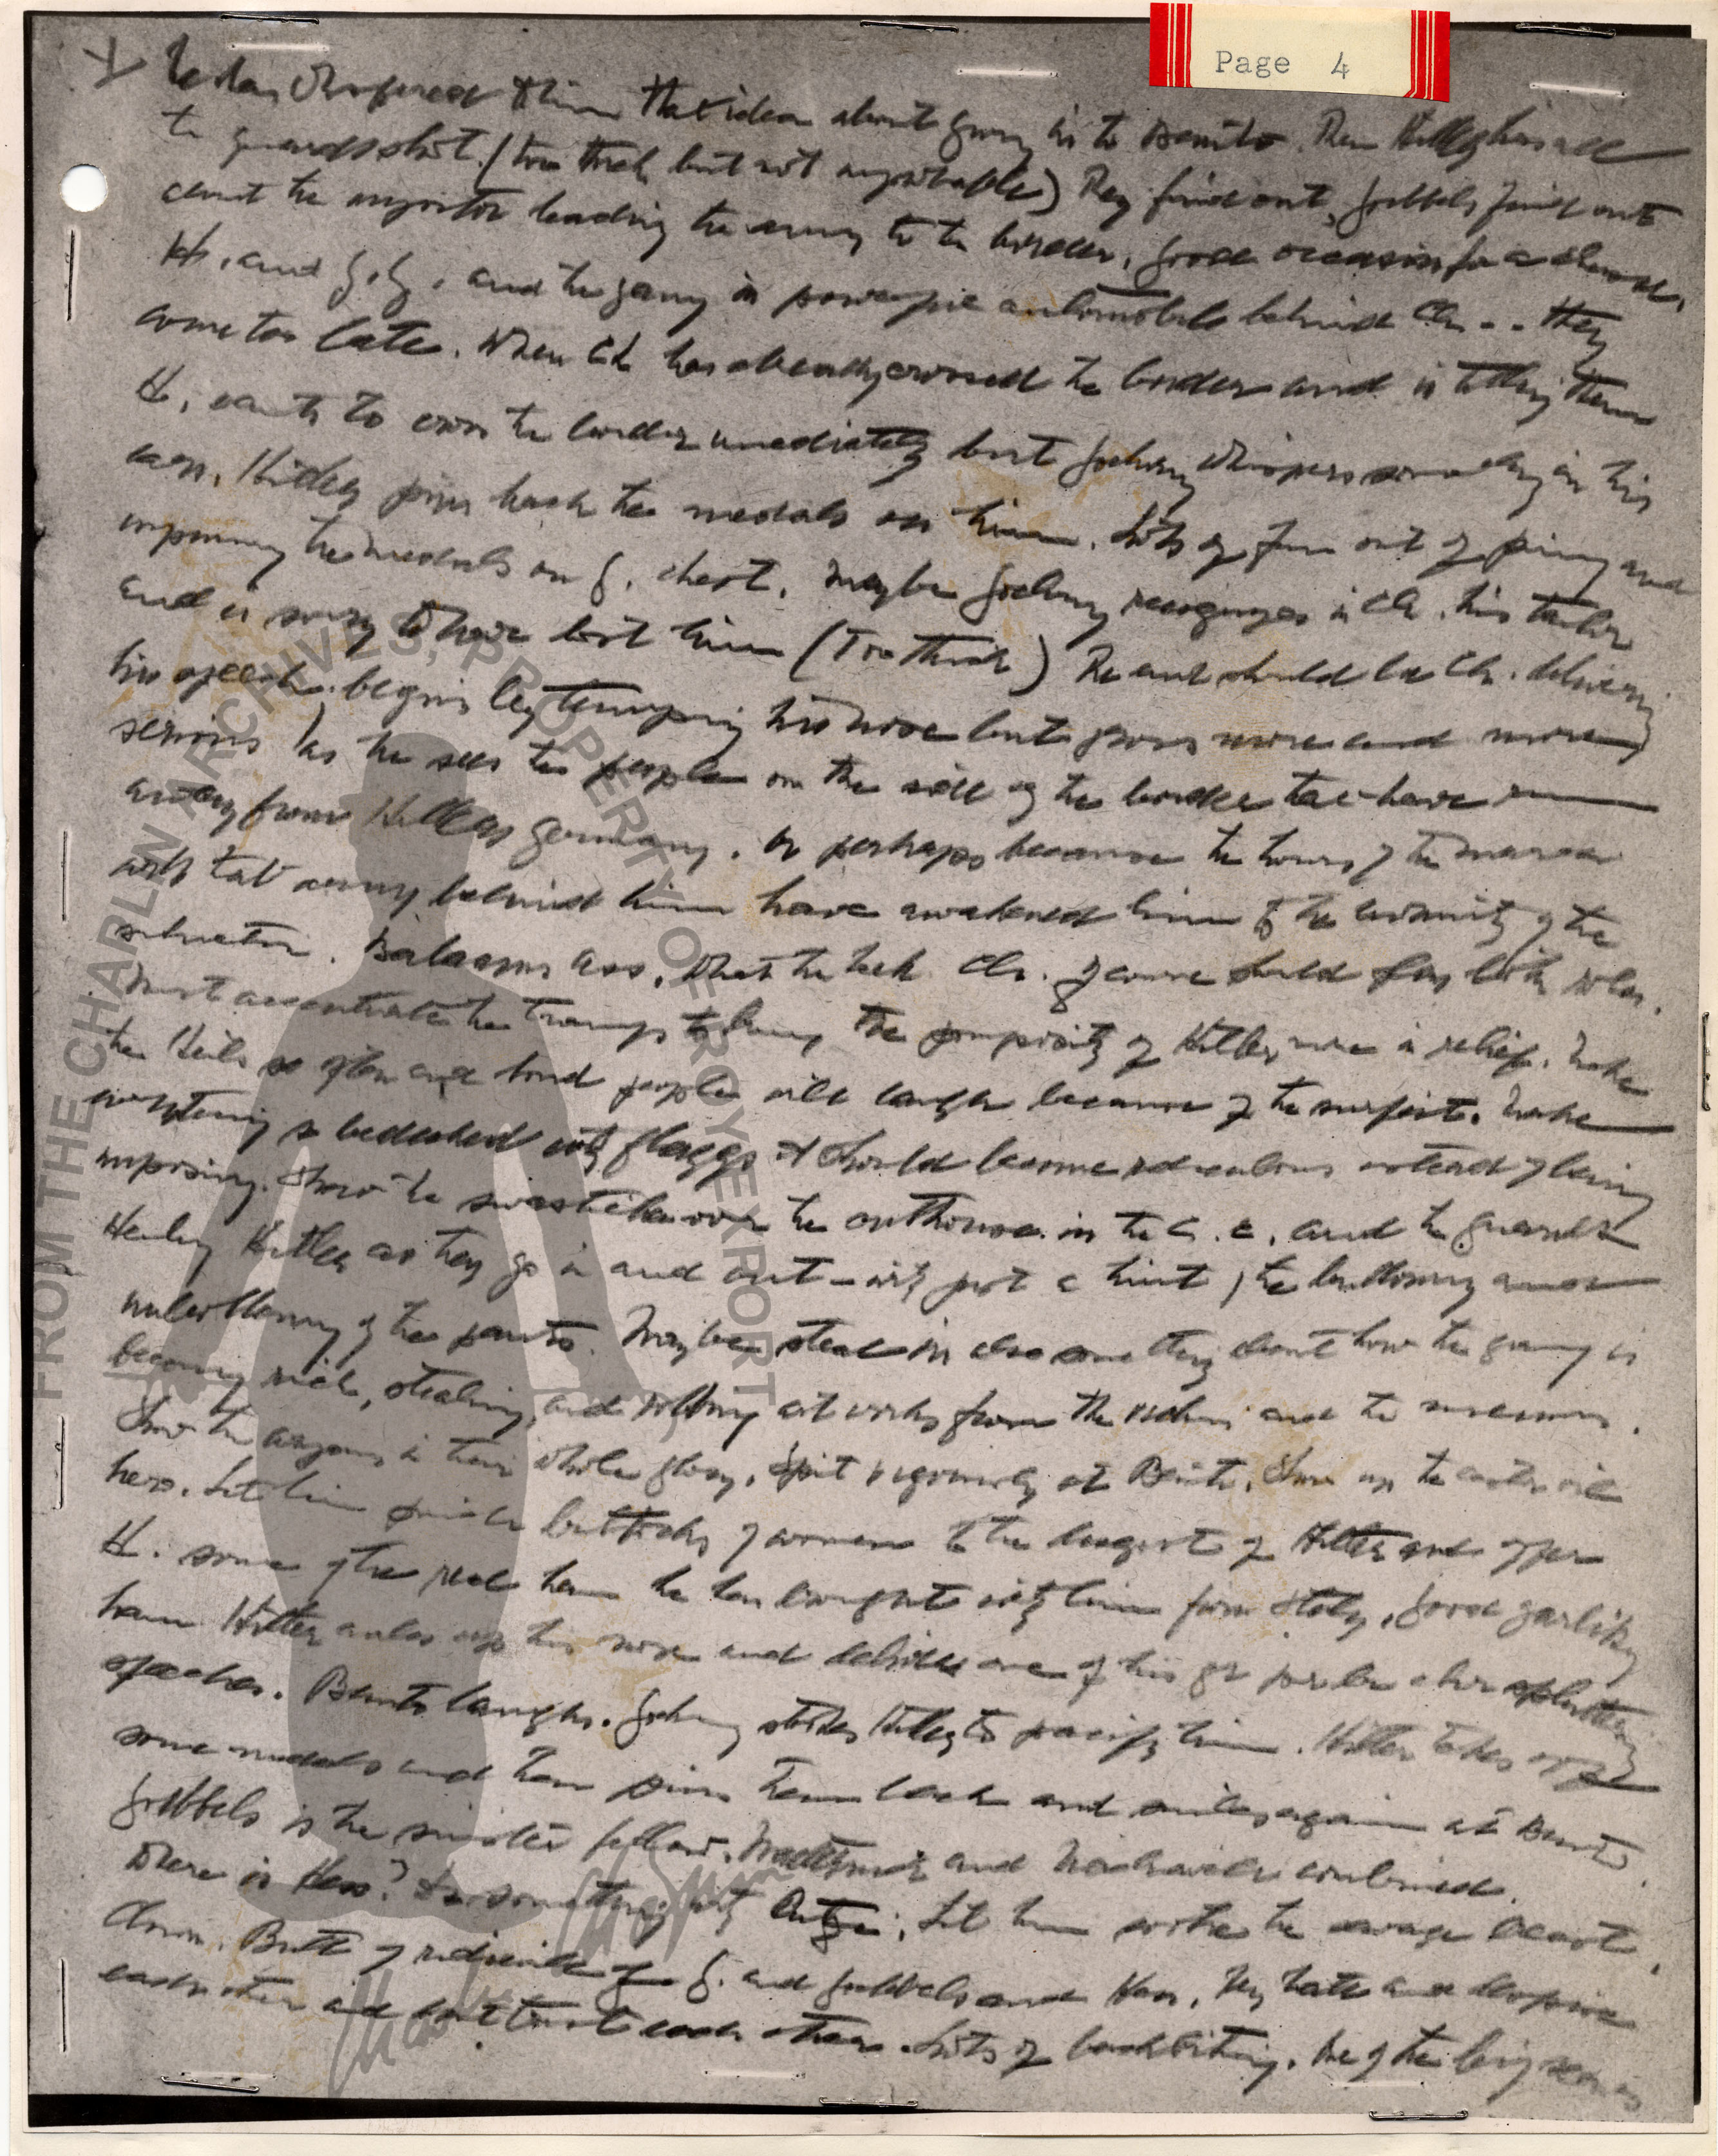 Page 4
He has whispered to him that idea about giving in to Benito. Then Hitler has all
the guards shot. (too thick but not improbable) They find out, Goebbels finds out
about the impostor leading the army to the border, good occasion for a chase,
H. and G.G. and the gang in powerful automobile behind Ch. -- they
come too late. When Ch has already crossed the border and is telling them
H. wants to cross the border immediately but Goering whispers something in his
ear. Hitler pins back the medals on him. Lots of fun out of pinning and
unpinning the medals on G. chest. Maybe Goering recognizes in Ch. his tailor
and is sorry to have lost him (Too thick) The end should be Ch. delivering
his speech, begins by thumping his nose but grows more and more
serious as he sees the people on the side of the border that have run
away from Hitlers Germany. Or perhaps because the hours of the march
with that army behind him have awakened him to the enormity of the
situation. Balaams Ass. What the heck Ch. of course should play both roles.
Must accentuate the tramp to bring the pomposity of Hitler more in relief. Make
the Heils so often and loud people will laugh because of the surfeit. Make
everything so bedecked with flaggs it should become ridiculous instead of being
imposing. Show the swastika over the outhouse in the C. C. and the guards
Heiling Hitler as they go in and out - with just a hint of the buttoning and
unbuttoning of the pants. Maybe steal in also something about how the gang is
becoming rich, stealing, and robbing art works from the and the museums.
Show the in their whole glory. Spit vigorously at Benito. Show up the castor oil
hero. Let him pinch buttocks of women to the disgust of Hitler and offer
H. some of the real ham he has brought with him from Italy, good garlicky
ham Hitler up his nose and delivers one of his spluttering
speeches. Benito laughs. Goering Hitler to pacify him. Hitler takes off
some medals and then pins them back and smiles again at Benito.
Goebbels is the sinister fellow. Metternich and combined.
Where is Hess? Do something with. Let him soothe the savage beast.
Clown. Butt of ridicule of G. and Goebbels and Hess. They hate and despise
each other and dont trust each other. Lots of backbiting. One of the big scenes
FROM THE CHAPLIN ARCHIVES, PROPERTY OF ROY EXPORT